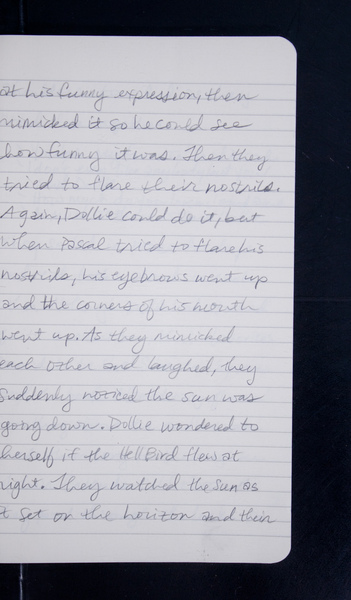 at his funny expression, then
mimicked it so he could see
how funny it was. Then they
tried to flare their nostrils.
Again, Dollie could do it, but
when Pascal tried to flare his
nostrils, his eyebrows went up
and the corners of his mouth
went up. As they mimicked
each other and laughed, they
suddenly noticed the sun was
going down. Dollie wondered to
herself if the Hell Bird flew at
night. They watched the sun as
it set on the horizon and their